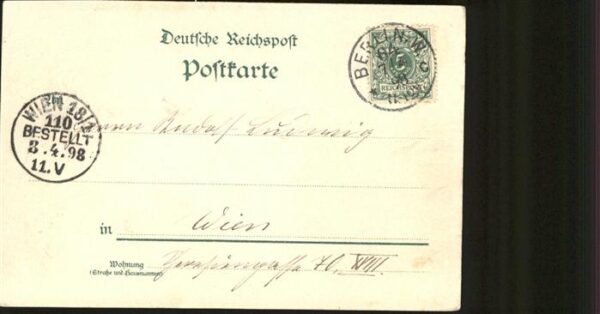 Deutsche Reichspost
Postkarte
BERLIN.W.
REICHSPOST
WIEN 18/1
110
BESTELLT
3.4.98
11.V
Herrn Rudolf Ludwig
in Wien
Wohnung
(Straße und Hausnummer)
Theresiengasse 70, XVIII.